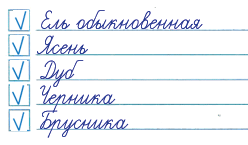 Ель обыкновенная
Ясень
Дуб
Черника
Брусника